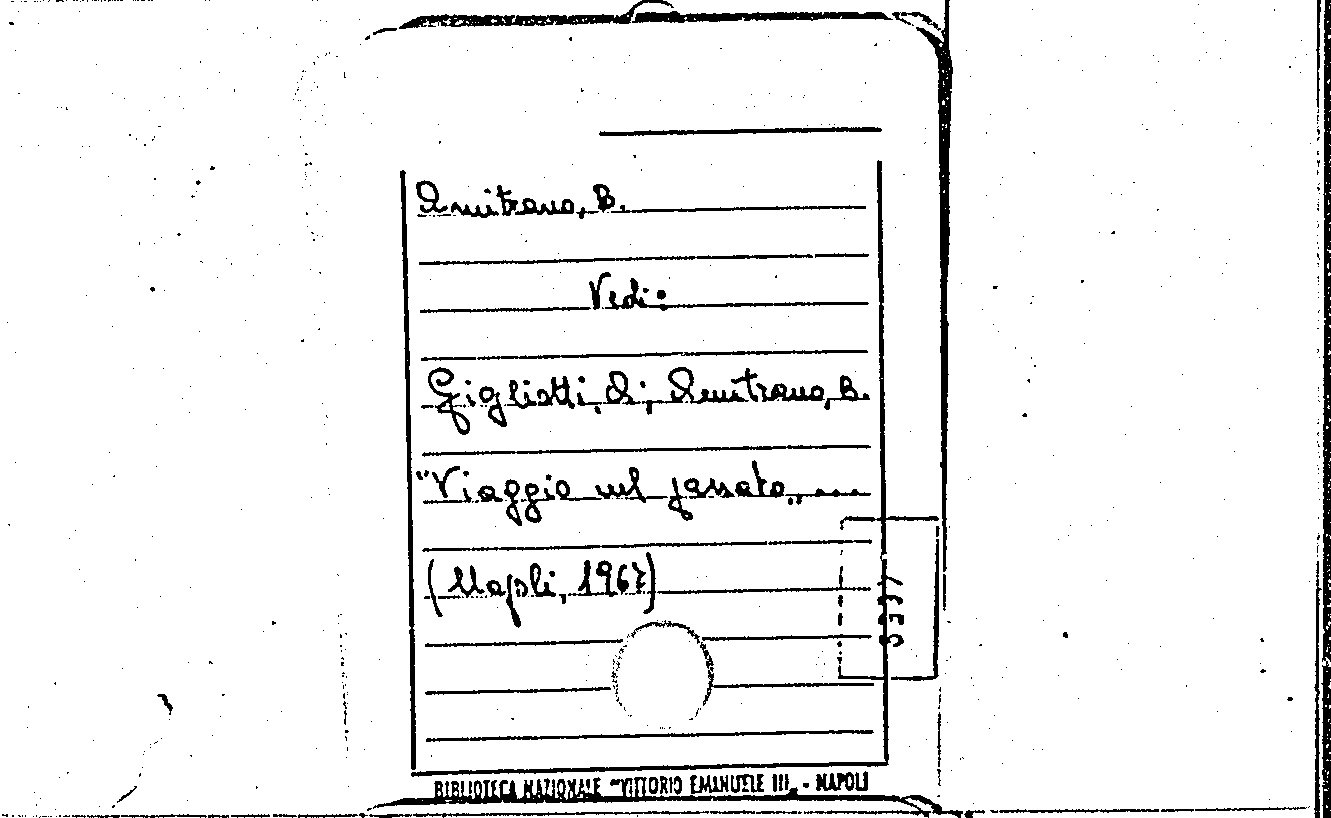 Amitrano, B.
Vedi:
Gigliotti, A.; Amitrano, B.
"Viaggio nel passato„ ....
(Napoli, 1967)
BIBLIOTECA NAZIONALE "VITTORIO EMANUELE III„ - NAPOLI